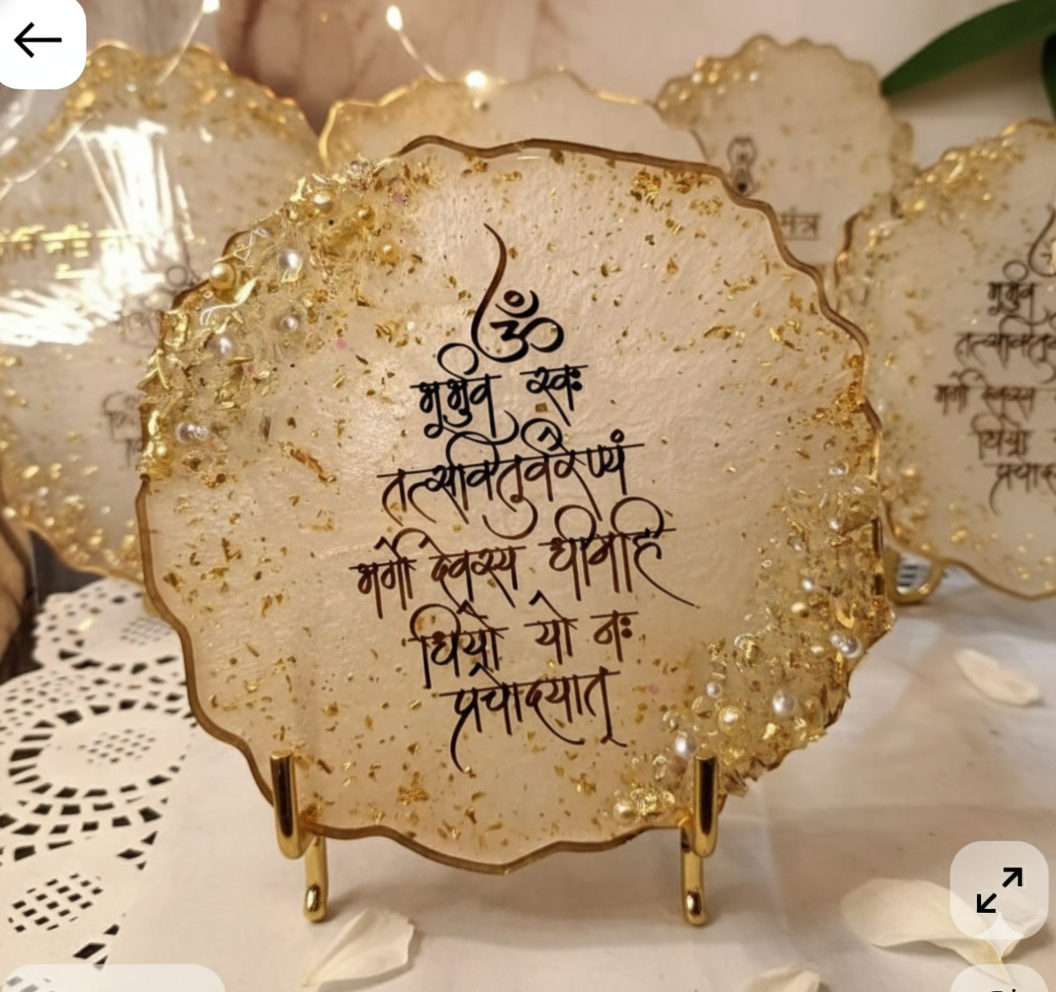 ॐ
भूर्भुव स्वः
तत्सवितुर्वरेण्यं
भर्गो देवस्य धीमहि
धियो यो नः
प्रचोदयात्
मंत्र
भूर्भुव
तत्सवितु
भर्गो देवस्य
धियो